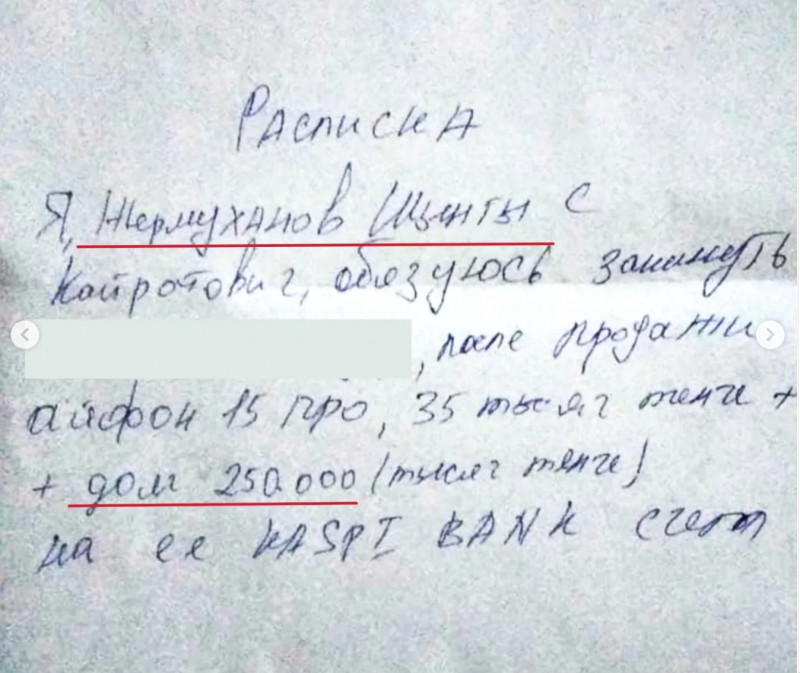 Расписка
Я, Жермуханов Шынгы с
Кайротович, обязуюсь закинуть
, после продажи
айфон 15 про, 35 тысяч тенге +
+ дом 250.000 (тысяч тенге)
на ее KASPI BANK счет